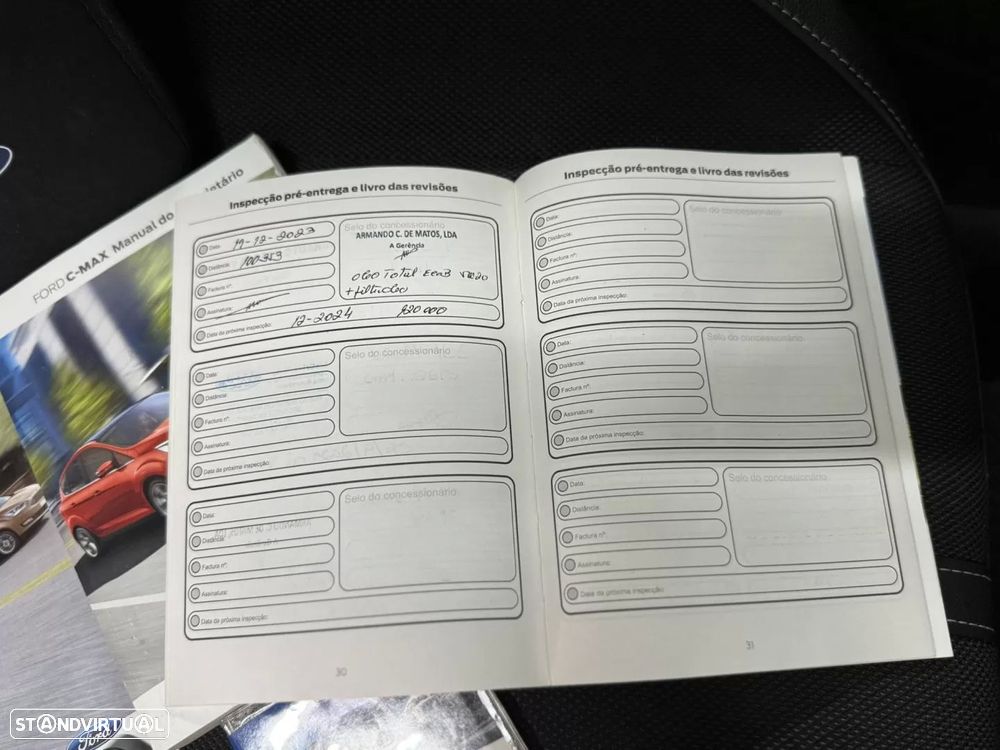 FORD C-MAX Manual do
Inspecção pré-entrega e livro das revisões
Data: 19-12-2023
Distância: 100.353
Factura nº:
Assinatura:
Data da próxima inspecção: 12-2024 120 000
Selo do concessionário
ARMANDO C. DE MATOS, LDA
A Gerência
oleo Total
+ filtro oleo
Data:
Distância:
Factura nº:
Assinatura:
Data da próxima inspecção:
Selo do concessionário
Data:
Distância:
Factura nº:
Assinatura:
Data da próxima inspecção:
Selo do concessionário
30
Inspecção pré-entrega e livro das revisões
Data:
Distância:
Factura nº:
Assinatura:
Data da próxima inspecção:
Selo do concessionário
Data:
Distância:
Factura nº:
Assinatura:
Data da próxima inspecção:
Selo do concessionário
Data:
Distância:
Factura nº:
Assinatura:
Data da próxima inspecção:
Selo do concessionário
31
Ford
STANDVIRTUAL